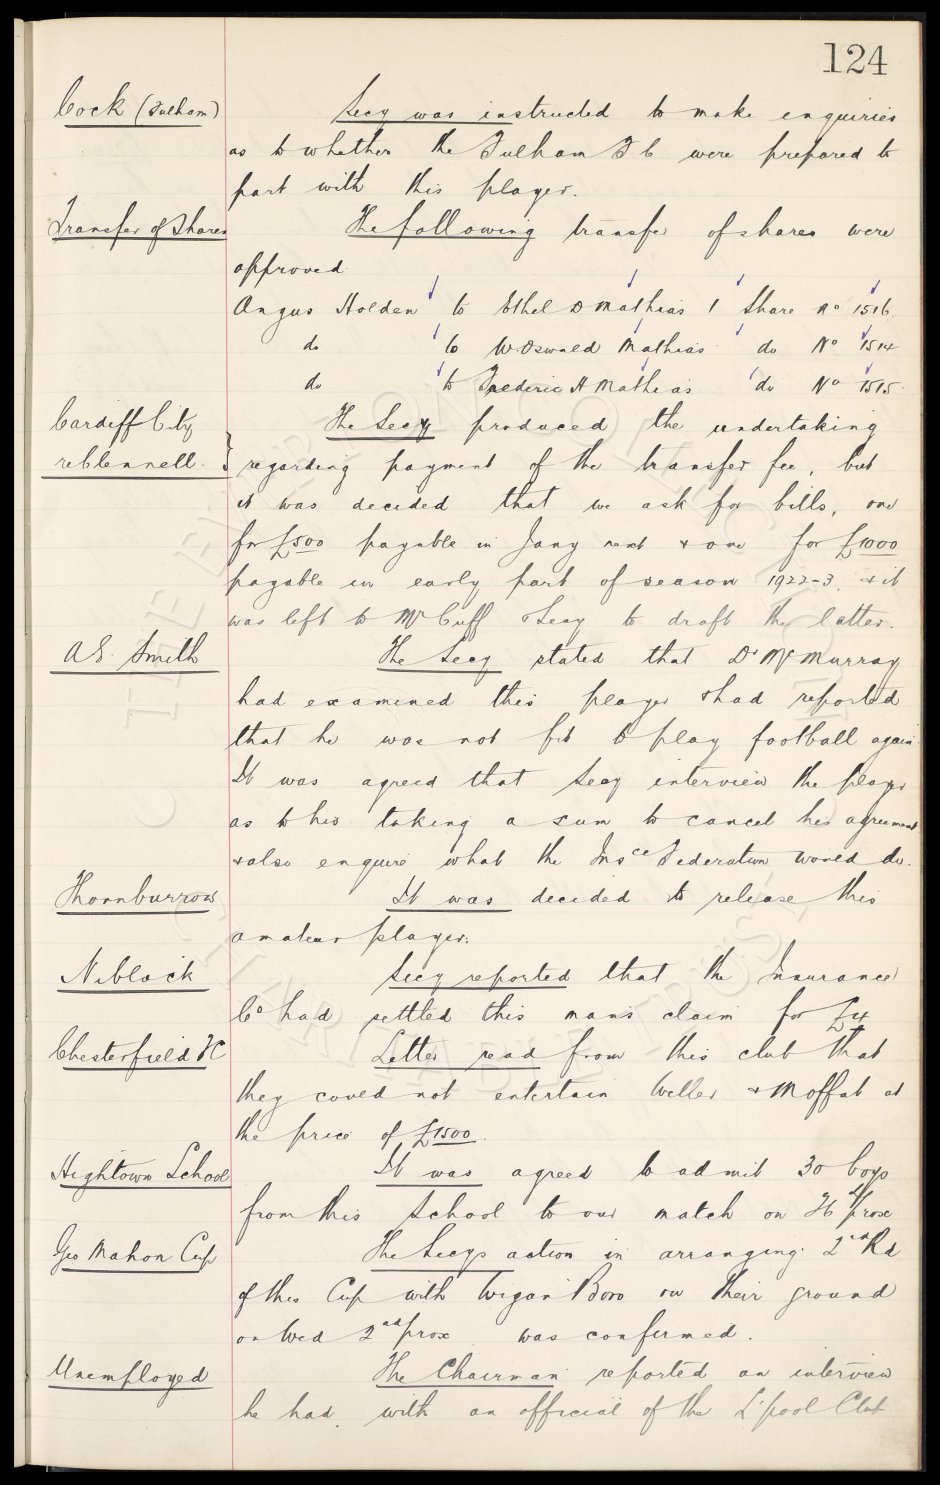 124
Cock (Fulham)
Secy was instructed to make enquiries
as to whether the Fulham F C were prepared to
part with this player.
Transfer of Shares
The following transfer of shares were
approved
Angus Holden to Ethel D Mathias 1 Share No 1516.
do to W. Oswald Mathias do No 1514
do to Frederic H Mathias do No 1515.
Cardiff City
re Blennell.
The Secy produced the undertaking
regarding payment of the transfer fee, but
it was decided that we ask for bills, one
for £500 payable in Jany next & one for £1000
payable in early part of season 1922-3. & it
was left to Mr Cuff & Secy to draft the letter.
A.E. Smith
The Secy stated that Dr McMurray
had examined this player & had reported
that he was not fit to play football again.
It was agreed that Secy interview the player
as to his taking a sum to cancel his agreement
& also enquire what the Insce Federation would do.
Thornburrow
It was decided to release this
amateur player.
Niblock
Secy reported that the Insurance
Co had settled this mans claim for £4
Chesterfield FC
Letter read from this club that
they could not entertain Weller & Moffat at
the price of £1500.
Hightown School
It was agreed to admit 30 boys
from this School to our match on prox
Geo Mahon Cup
The Secys action in arranging 2nd Rd
of this Cup with Wigan Boro on their ground
on Wed 2nd prox was confirmed.
Unemployed
The Chairman reported an interview
he had with an official of the L'pool Club
THE EVERTON
CHARITABLE TRUST